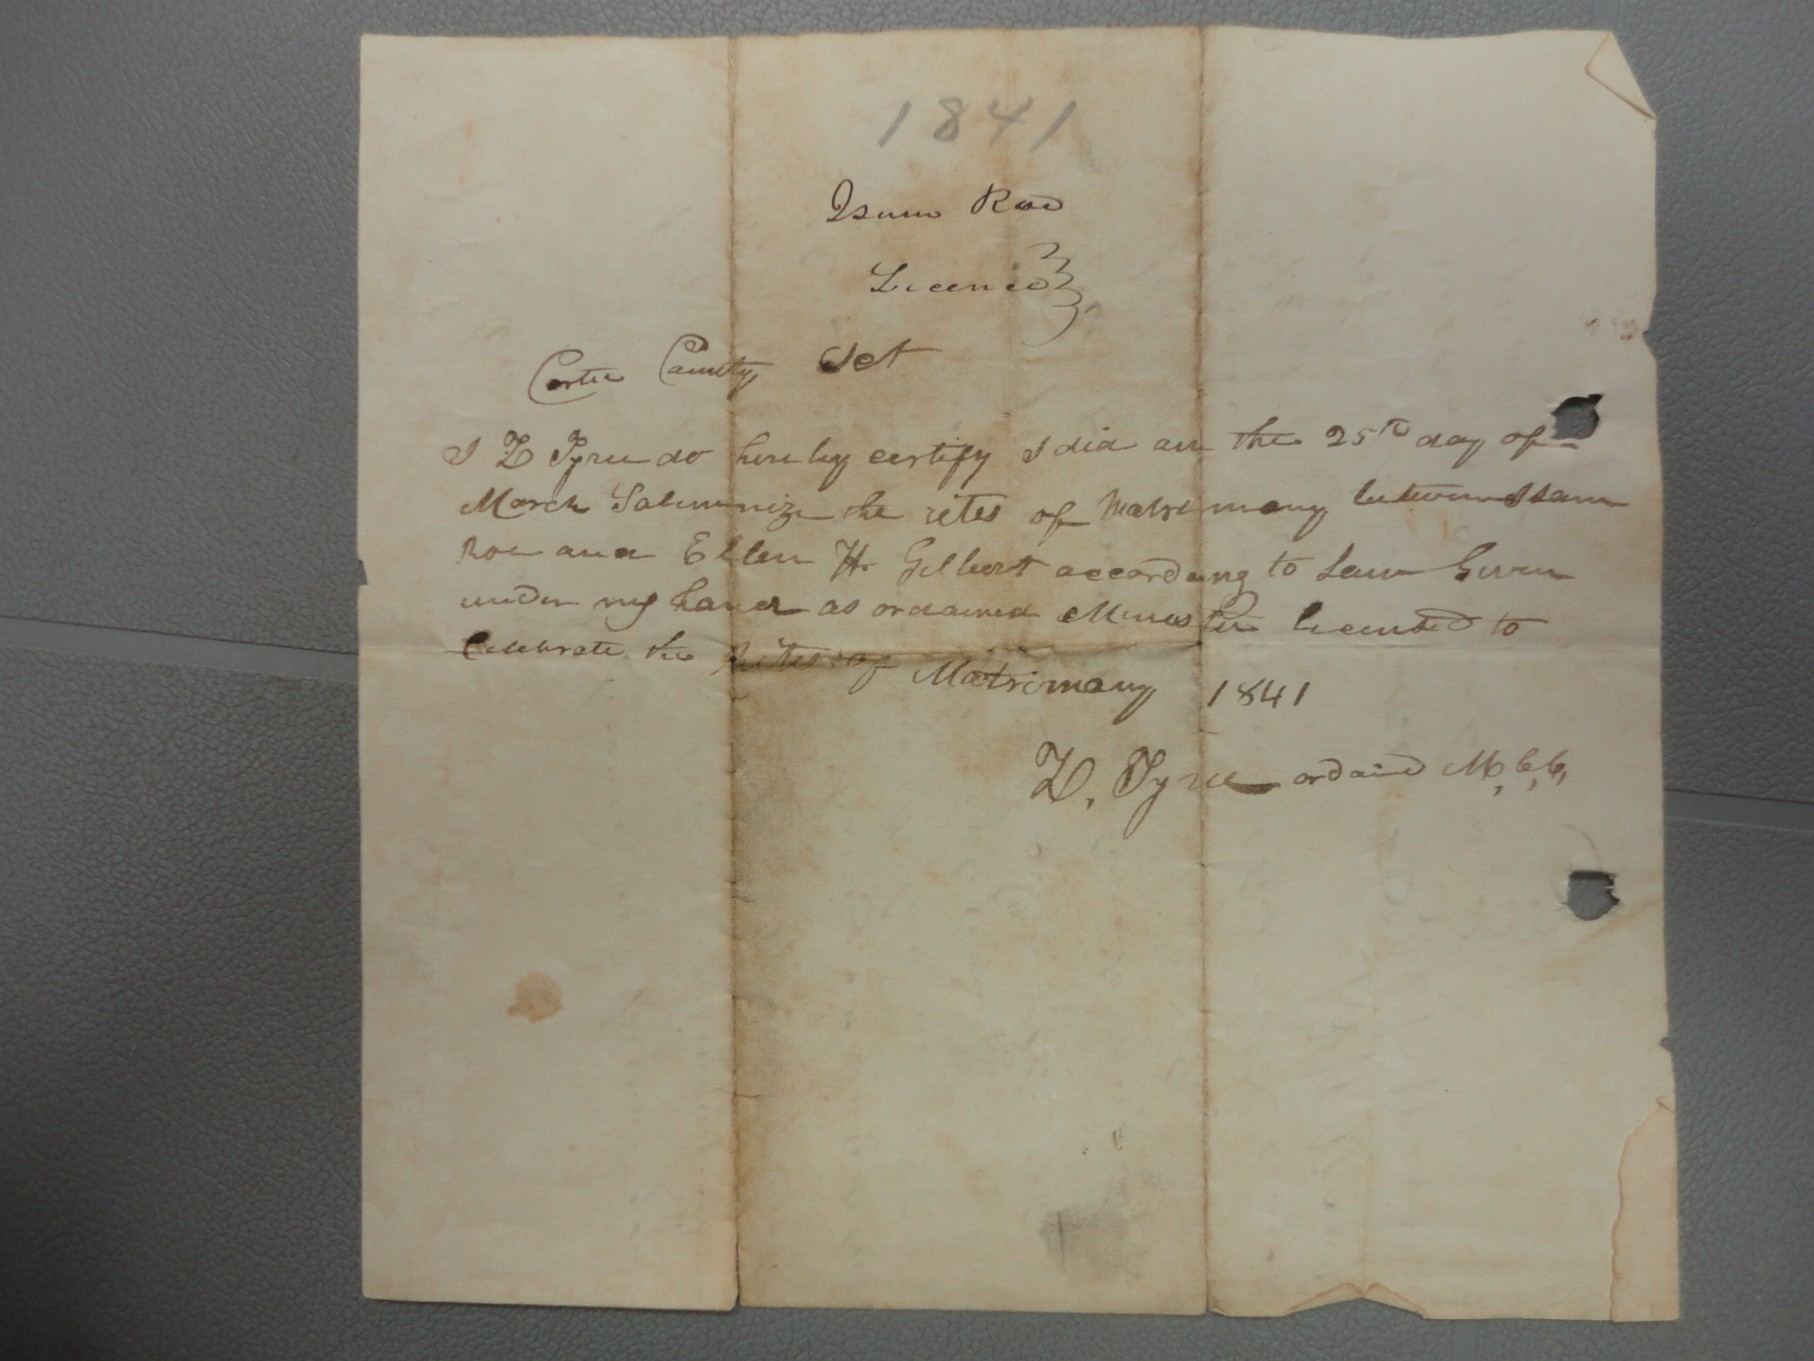 1841
Isum Roe
Licence
Carter County Sct
I Z Tyree do hereby certify I did on the 25th day of
March Solumnize the rites of Matrimony between Isam
Roe and Ellen H. Gilbert according to Law Given
under my hand as ordained Minister licensed to
Celebrate the Rites of Matrimony 1841
Z. Tyree ordained M, C, C,